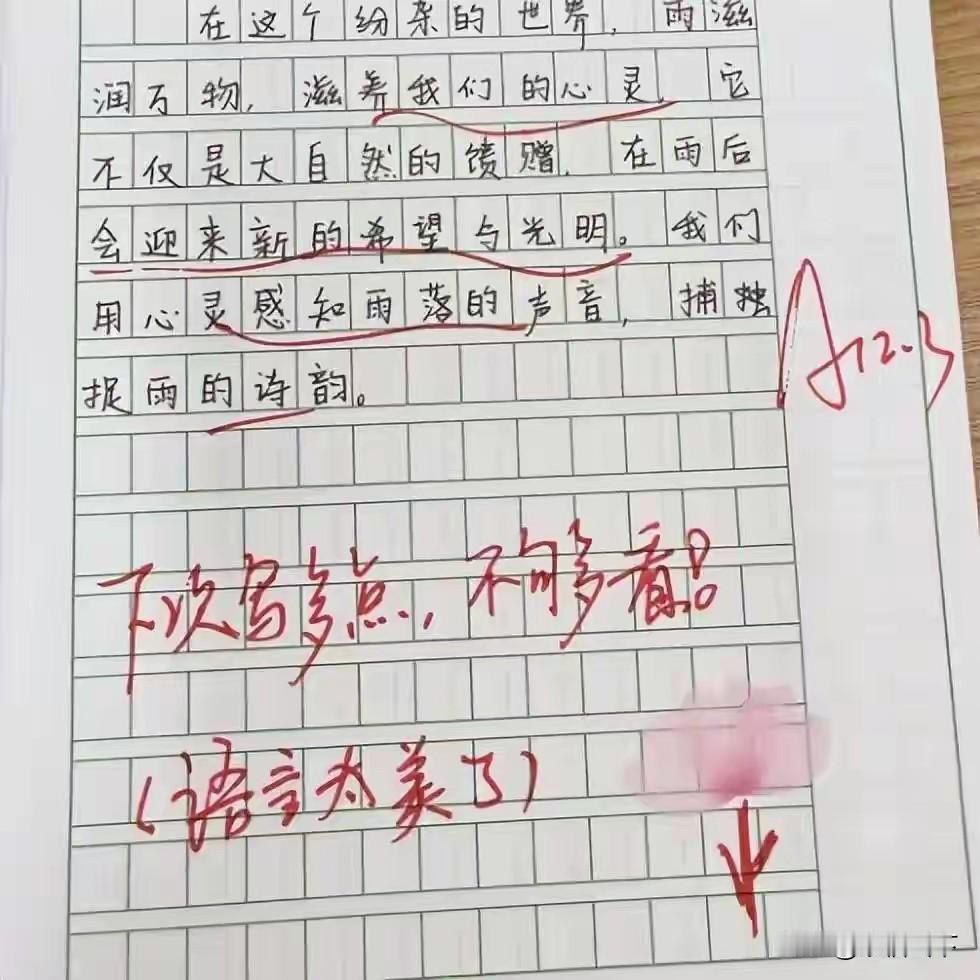 在这个纷杂的世界，雨滋
润万物，滋养我们的心灵，它
不仅是大自然的馈赠，在雨后
会迎来新的希望与光明。我们
用心灵感知雨落的声音，捕独
捉雨的诗韵。
A 12.3
下次写多点，不够看!
（语言太美了）